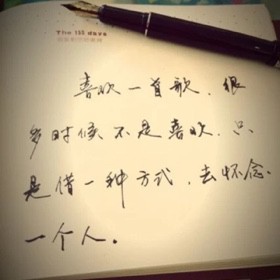 The 365 days
喜欢一首歌，很
多时候不是喜欢，只
是借一种方式，去怀念
一个人。